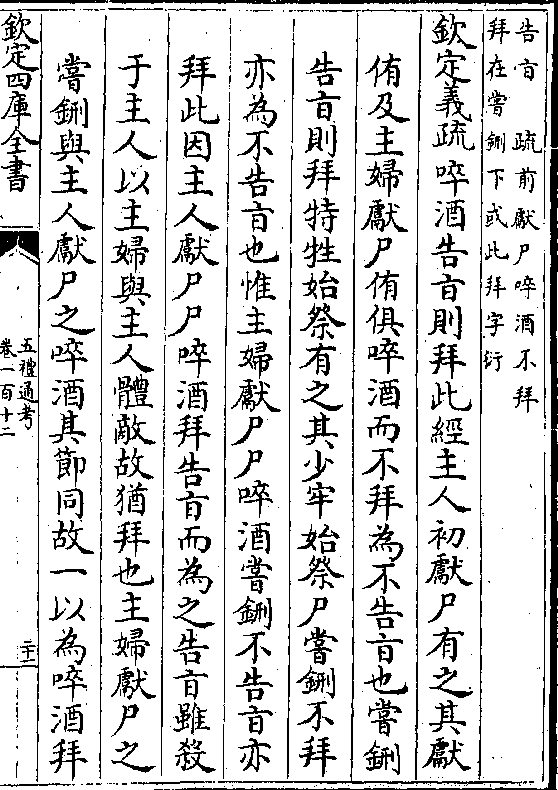 告㫖　疏前獻尸啐酒不拜
拜在嘗鉶下或此拜字衍
欽定義疏啐酒告㫖則拜此經主人初獻尸有之其獻
侑及主婦獻尸侑俱啐酒而不拜為不告㫖也嘗鉶
告㫖則拜特牲始祭有之其少牢始祭尸嘗鉶不拜
亦為不告㫖也惟主婦獻尸尸啐酒嘗鉶不告㫖亦
拜此因主人獻尸尸啐酒拜告㫖而為之告㫖雖殺
于主人以主婦與主人體敵故猶拜也主婦獻尸之
嘗鉶與主人獻尸之啐酒其節同故一以為啐酒拜
欽定四庫全書
五禮通考
卷一百十二
二十二